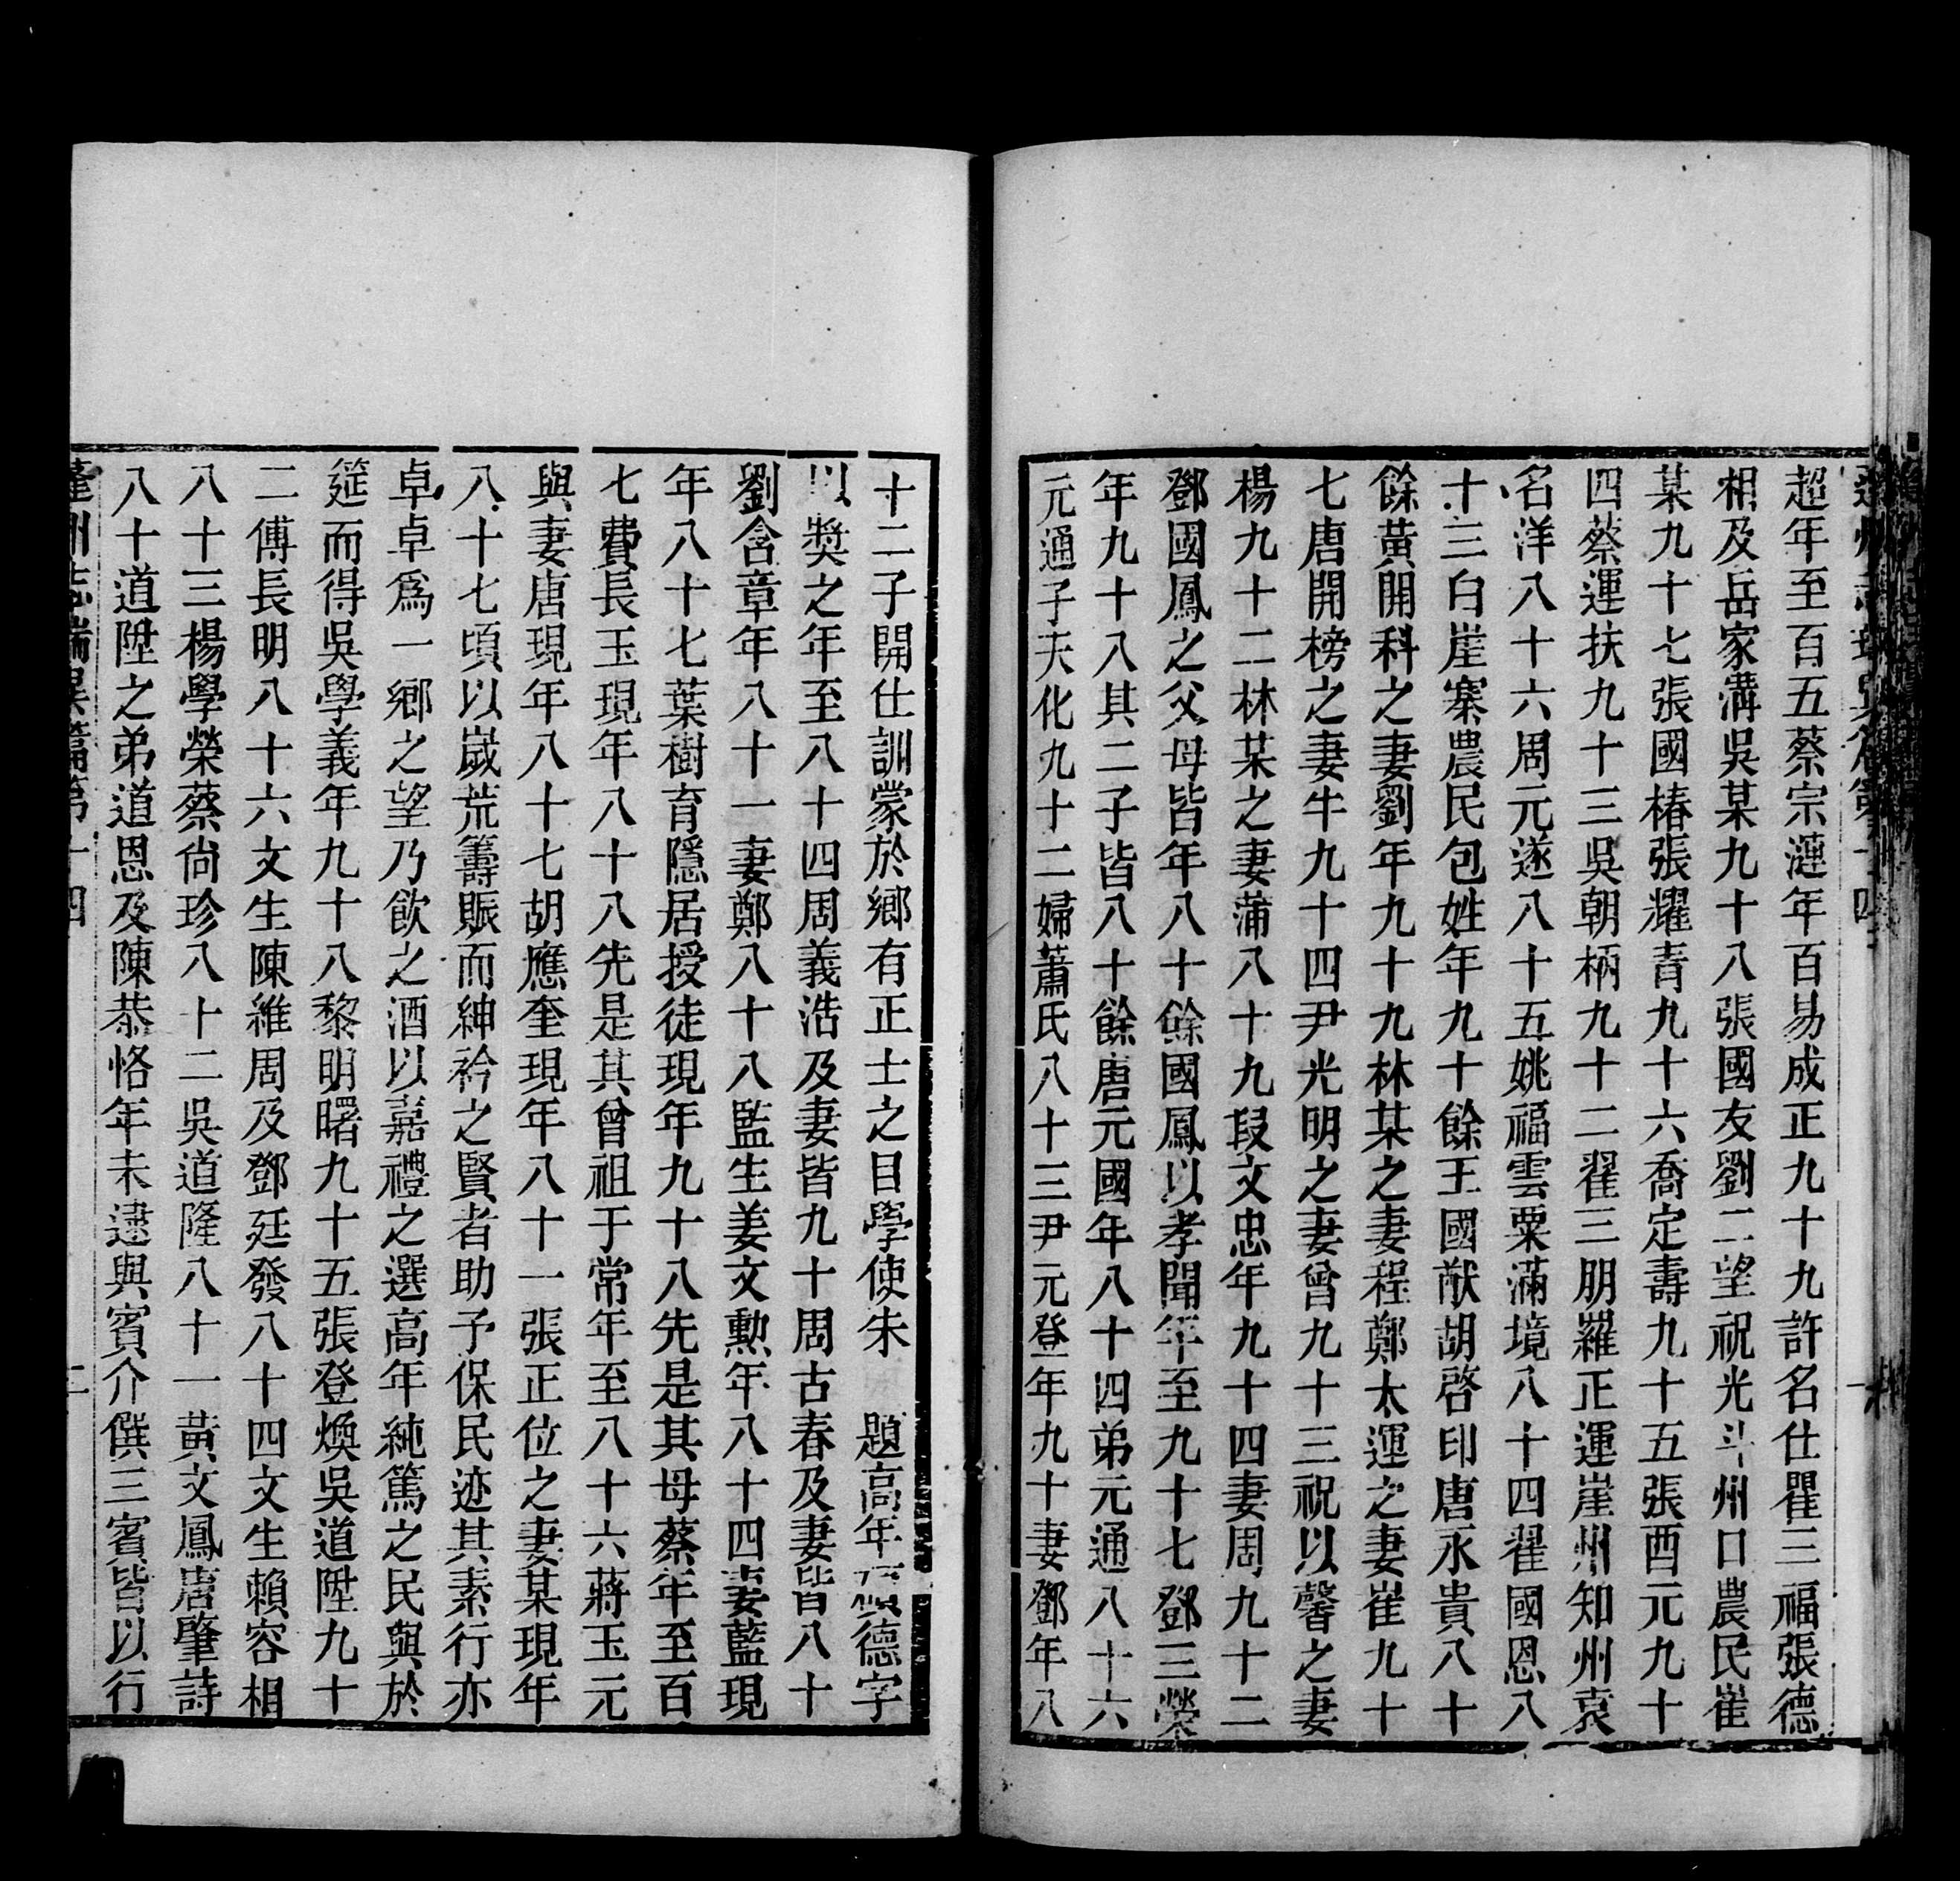 超年至百五蔡宗漣年百易成正九十九許名仕瞿三福張德
相及岳家溝吳某九十八張國友劉二望祝光斗州口農民崔
某九十七張國椿張耀青九十六喬定壽九十五張酉元九十
四蔡運扶九十三吳朝柄九十二翟三朋羅正運崖州知州袁
名洋八十六周元遂八十五姚福雲粟滿境八十四翟國恩八
十三白崖寨農民包姓年九十餘王國猷胡啓印唐永貴八十
餘黃開科之妻劉年九十九林某之妻程鄭太運之妻崔九十
七唐開榜之妻牛九十四尹光明之妻曾九十三祝以馨之妻
楊九十二林某之妻蒲八十九段文忠年九十四妻周九十二
鄧國鳳之父母皆年八十餘國鳳以孝聞年至九十七鄧三榮
年九十八其二子皆八十餘唐元國年八十四弟元通八十六
元通子天化九十二婦蕭氏八十三尹元登年九十妻鄧年八
十二子開仕訓蒙於鄉有正士之目學使朱 題高年碩德字
以獎之年至八十四周義浩及妻皆九十周古春及妻皆八十
劉含章年八十一妻鄭八十八監生姜文勲年八十四妻藍現
年八十七葉樹育隱居授徒現年九十八先是其母蔡年至百
七費長玉現年八十八先是其曾祖于常年至八十六蔣玉元
與妻唐現年八十七胡應奎現年八十一張正位之妻某現年
八十七頃以歲荒籌賑而紳衿之賢者助予保民迹其素行亦
卓卓爲一鄉之望乃飲之酒以嘉禮之選高年純篤之民與於
筵而得吳學義年九十八黎明曙九十五張登煥吳道陞九十
二傅長明八十六文生陳維周及鄧廷發八十四文生賴容相
八十三楊學榮蔡尙珍八十二吳道隆八十一黃文鳳唐肇詩
八十道陞之弟道恩及陳恭恪年未逮與賓介僎三賓皆以行
蓬州志瑞異篇第十四 二